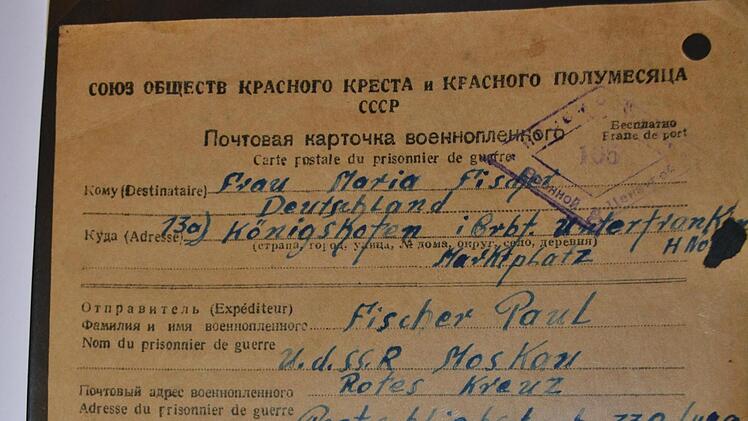 СОЮЗ ОБЩЕСТВ КРАСНОГО КРЕСТА и КРАСНОГО ПОЛУМЕСЯЦА
СССР
Почтовая карточка военнопленного
Бесплатно
Franc de port
Carte postale du prisonnier de guerre
Кому (Destinataire) Frau Maria Fischer
Deutschland
Куда (Adresse) 13a) Königshofen i Grbf. Unterfranken
(страна, город, улица, № дома, округ, село, деревня)
Marktplatz H No
Отправитель (Expéditeur)
Фамилия и имя военнопленного Fischer Paul
Nom du prisonnier de guerre
U.d.SS.R Moskau
Почтовый адрес военнопленного Rotes Kreuz
Adresse du prisonnier de guerre